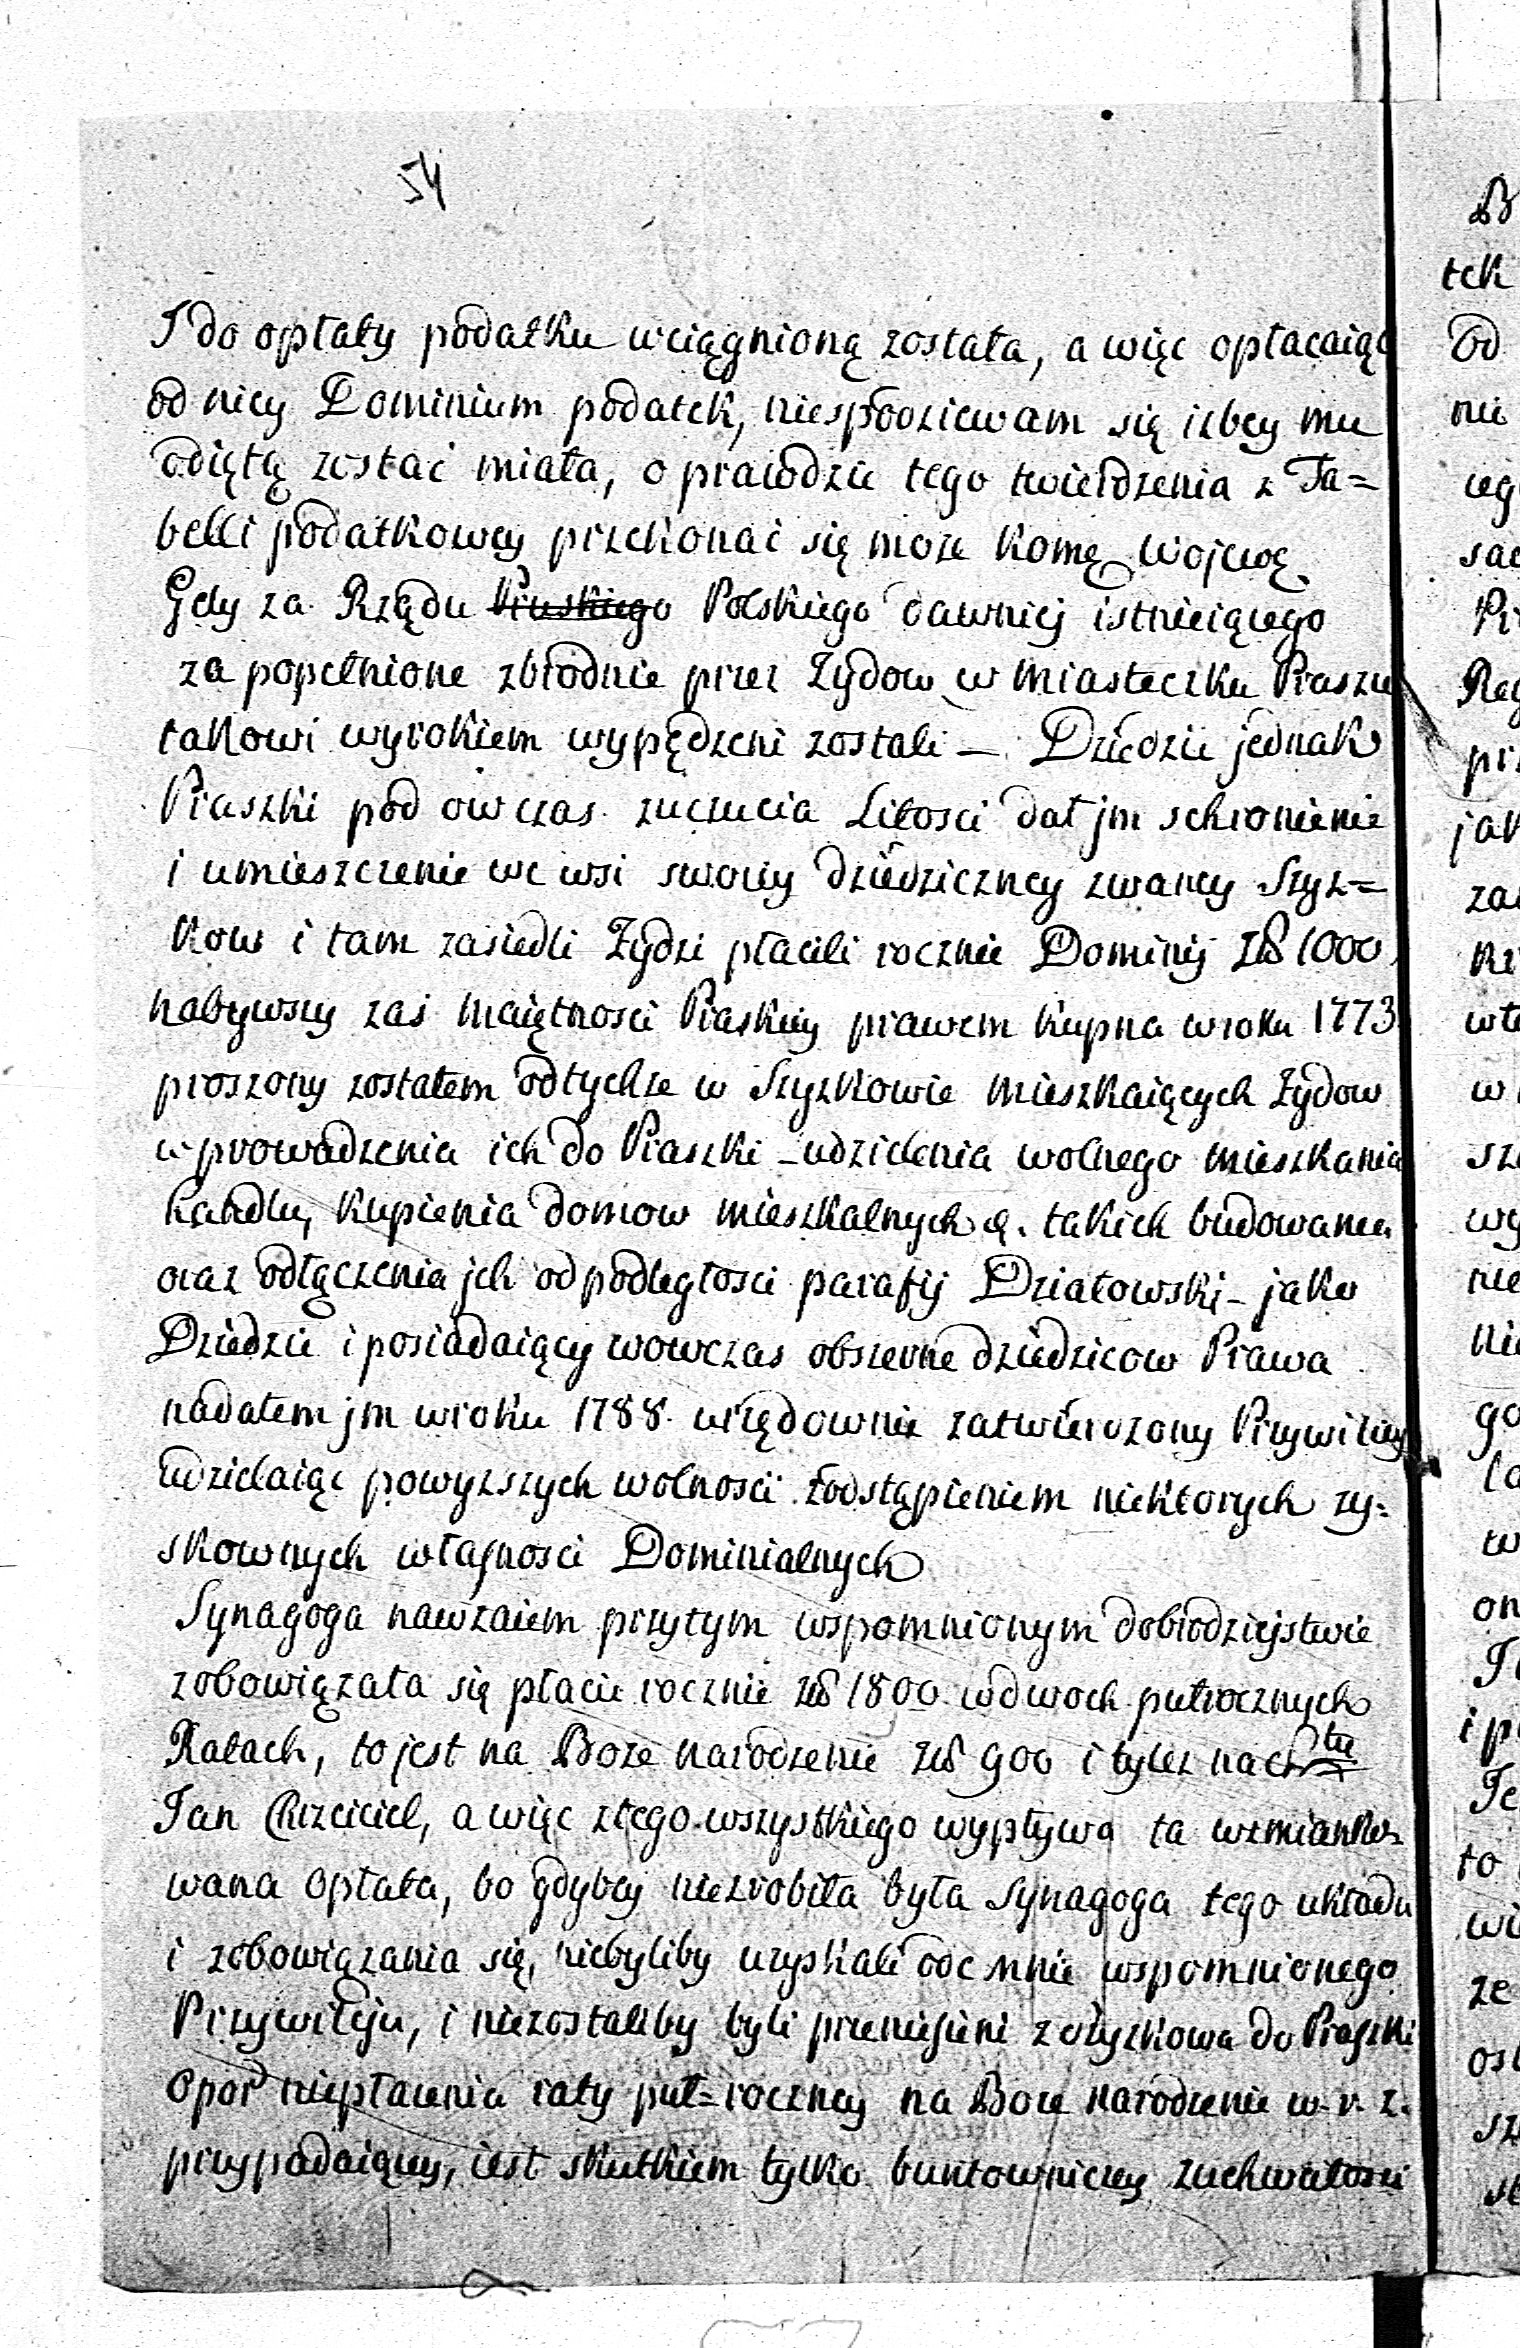 54
I do opłaty podatku wciągnioną została, a więc opłacaiąc
od niey Dominium podatek, niespodziewam się izbey mu
odiętą zostać miała, o prawdzie tego twierdzenia z Ta=
belli podatkowey przekonać się może Komę Wojewę
Gdy za Rządu Pruskiego Polskiego dawniej istnieiącego
za popełnione zbrodnie przez Żydow w miasteczku Piaszki
takowi wyrokiem wypędzeni zostali — Dziedzic jednak
Piaszki pod owczas zuczucia Litosci dał jm schronienie
i umieszczenie we wsi swoiey dziedziczney zwaney Szyz=
kow i tam zasiedli Żydzi płacili rocznie Dominij Zł 1000
nabywszy zaś maiętnosci Piaskiey prawem kupna wroku 1773
proszony zostałem odtychże w Szyzkowie mieszkaiących Żydow
wprowadzenia ich do Piaszki – udzielenia wolnego mieszkania
handlu, kupienia domow mieszkalnych q. takich budowania
oraz odłączenia jch od podległosci parafij Działowski – jako
Dziedzic i posiadaiący wowczas obszerne dziedzicow Prawa
nadałem jm wroku 1788. urzędownie zatwierdzony Przywiley
udzielaiąc powyzszych wolnosci zodstąpieniem niektorych zy=
skownych własnosci Dominialnych
Synagoga nawzaiem przytym wspomnionym dobrodziejstwie
zobowiązała się płacic rocznie zł 1800 wdwoch pułrocznych
Ratach, to jest na Boze narodzenie zł 900 i tylez na Sty
Jan Chrzciciel, a więc ztego wszystkiego wypływa ta wzmianko=
wana opłata, bo gdybey niezrobiła była Synagoga tego układu
i zobowiązania się, niebyliby uzyskali ode mnie wspomnionego
Przywileju, i niezostaliby byli przeniesieni z Szyzkowa do Piaszki
Opor niepłacenia raty puł=roczney na Boze narodzenie w. r. z.
przypadaiącey, iest skutkiem tylko buntowniczey zuchwałosci